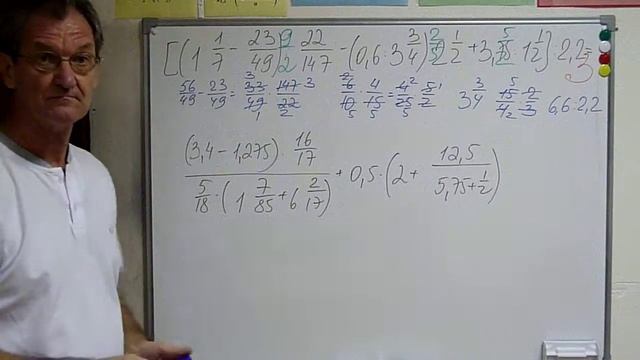 [(1 1/7 - 23/49) 9/2 22/147 - (0,6 · 3 3/4) 2 1/2 + 3, 5 · 1 1/2] · 2,2
56/49 - 23/49 = 33/49 · 147/22 3/2 6/10 · 4/15 = 4/25 · 5/2 3 3/4 15/4 · 2/3 6,6 · 2,2
(3,4 - 1,275) · 16/17 / 5/18 · (1 7/85 + 6 2/17) + 0,5 · (2 + 12,5 / 5,75 + 1/2)